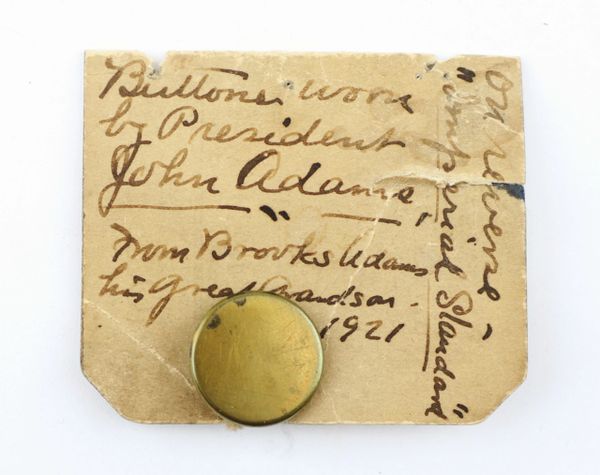 Buttons worn
by President
John Adams,
"
From Brooks Adams
his Great Grandson.
1921
On reverse -
"Imperial Standard"